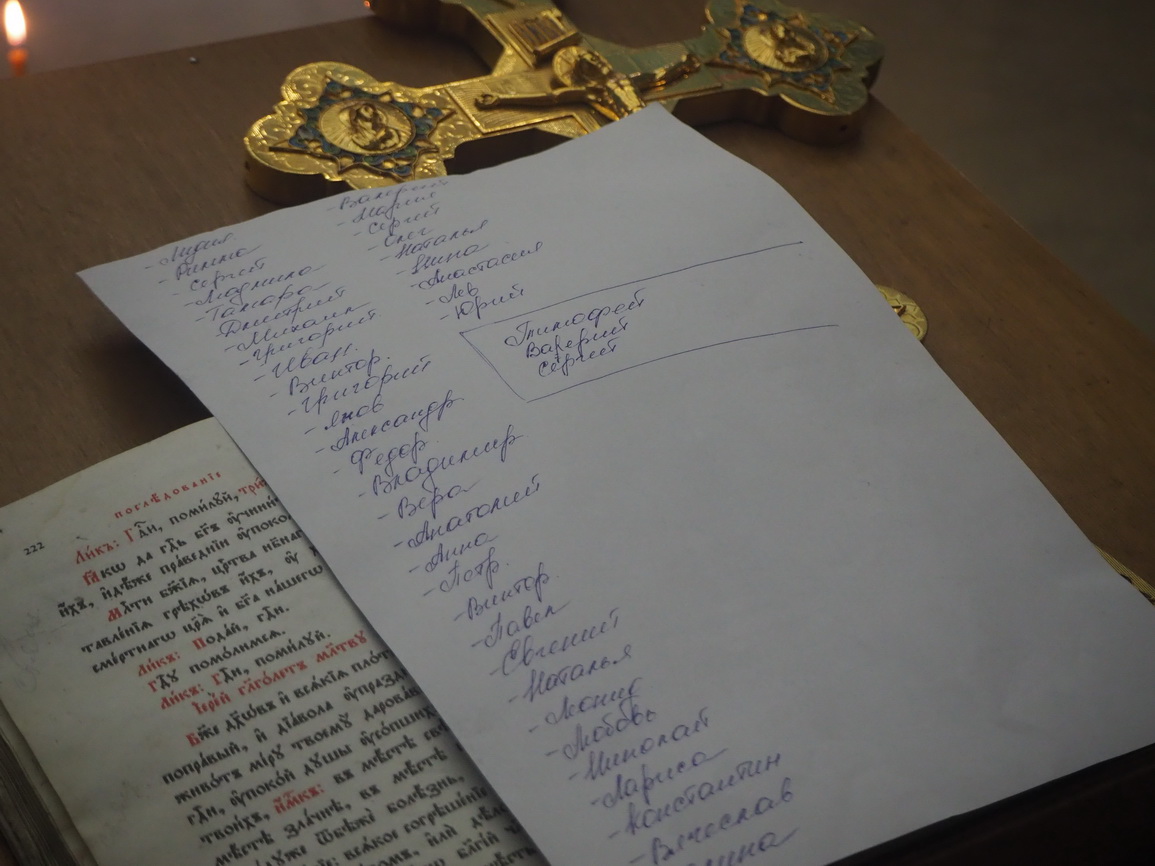 - Лидия.
- Римма
- Сергий
- Людмила
- Тамара
- Дмитрий
- Михаил
- Григорий.
- Иван.
- Виктор.
- Григорий
- Яков
- Александр
- Федор.
- Владимир
- Вера
- Анатолий
- Анна
- Петр.
- Виктор.
- Павел
- Евгений
- Наталья
- Любовь
- Николай
- Лариса
- Константин
- Вячеслав
- Валерий
- Мария
- Сергий
- Олег
- Наталья
- Нина
- Анастасия
- Лев
- Юрий
Тимофей
Валерий
Сергий
222
послѣдованїе
Ли́къ: Гд҇и, поми́лꙋй, три́
Ꙗ҆́кѡ да гд҇ь бг҃ъ ᲂу҆чини́
и҆́хъ, и҆дѣ́же пра́веднїи ᲂу҆поко
Мл҇ти бж҃їѧ, цр҇тва нбⷭ҇на
тавле́нїѧ грѣхѡ́въ и҆́хъ, ᲂу҆
сме́ртнагѡ цр҃ѧ̀ и҆ бг҃а на́шегѡ
Ли́къ: Пода́й, гд҇и.
Гд҇ꙋ помо́лимсѧ.
Ли́къ: Гд҇и, поми́лꙋй.
І҆ере́й гл҃го́летъ мл҃твꙋ
Бж҃е дх҃ѡ́въ и҆ всѧ́кїѧ пло́т
попра́вый, и҆ дїа́вола ᲂу҆праздн
живо́тъ мі́рꙋ твоемꙋ̀ дарова́в
гд҇и, ᲂу҆поко́й дꙋ́шы ᲂу҆со́пших
твои́хъ, и҆́мкъ: въ мѣ́стѣ све
мѣ́стѣ зла́чнѣ, въ мѣ́стѣ
ѿню́дꙋже ѿбѣжѐ болѣ́знь,
всѧ́кое согрѣше́нїе